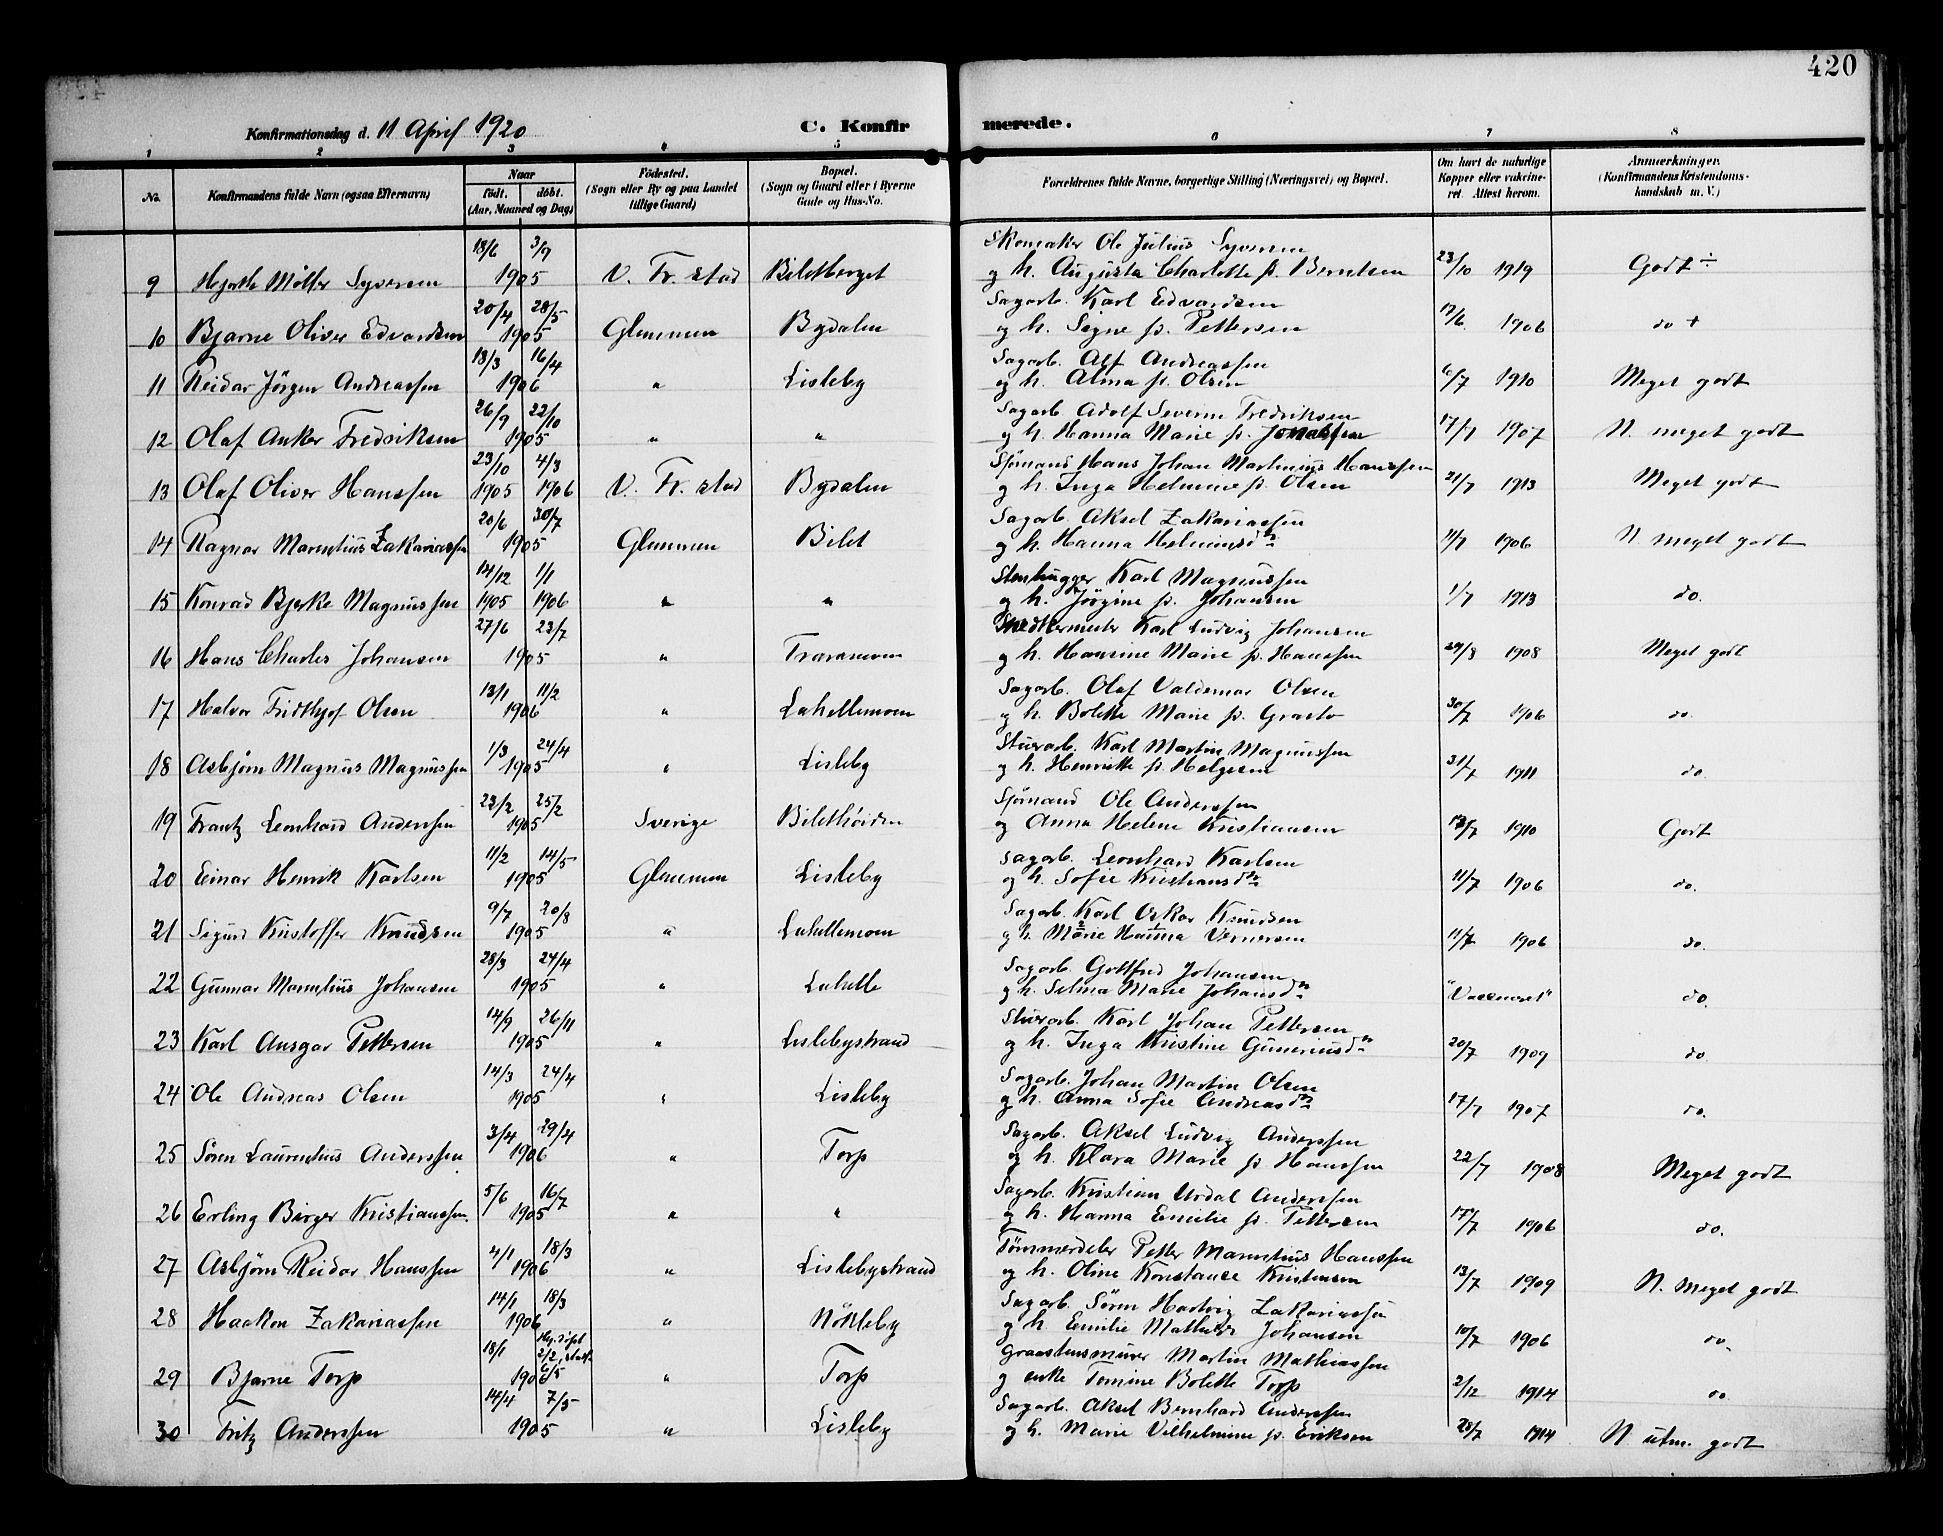 420
Konfirmationsdag d. 11 April 1920
C. Konfirmerede.
1 2 3 4 5 6 7 8
No.
Konfirmandens fulde Navn (ogsaa Efternavn)
Naar
født. døbt.
(Aar, Maaned og Dag)
Födested.
(Sogn eller By og paa Landet
tillige Gaard)
Bopæl.
(Sogn og Gaard eller i Byerne
Gade og Hus-No.
Forældrenes fulde Navne, borgerlige Stilling (Næringsvei) og Bopæl.
Om havt de naturlige
Kopper eller vakcine-
ret. Attest herom.
Anmærkninger.
(Konfirmandens Kristendoms-
kundskab m. V.)
18/6 3/9 Skomaker Ole Julius Syversen
9 Møller Syversen 1905 V. Fr. stad Biletberget og h. Augusta Charlotte f. Berntsen 23/10 1919 Godt ÷
20/4 28/5 Sagarb. Karl Edvardsen
10 Bjarne Oliver Edvardsen 1905 Glemmen Bydalen og h. Signe f. Pettersen 12/6 1906 do +
18/3 16/4 Sagarb. Alf Andreassen
11 Reidar Jörgen Andreassen 1906 " Lisleby og h. Alma f. Olsen 6/7 1910 Meget godt
26/9 22/10 Sagarb. Adolf Severin Fredriksen
12 Olaf Anker Fredriksen 1905 " " og h. Hanna Marie f. Jonassen 17/7 1907 N. meget godt
23/10 4/3 Sjömand Hans Johan Martinius Hanssen
13 Olaf Oliver Hanssen 1905 1906 V. Fr. stad Bydalen og h. Inga Helmine f. Olsen 21/7 1913 Meget godt
20/6 30/7 Sagarb. Aksel Zakariassen
14 Ragnar Marentius Zakariassen 1905 Glemmen Bilet og h. Hanna Helminsdtr 11/7 1906 N. meget godt
14/12 1/1 Stenhugger Karl Magnussen
15 Konrad Bjerke Magnussen 1905 1906 " " og h. Jörgine f. Johansen 1/7 1913 do.
27/6 23/7 Snedkermester Karl Ludvig Johansen
16 Hans Charles Johansen 1905 " Traramoen og h. Hansine Marie f. Hanssen 29/8 1908 Meget godt
13/1 11/2 Sagarb. Olaf Valdemar Olsen
17 Halvor Fridthjof Olsen 1906 " Lahellemoen og h. Bolette Marie f. 30/7 1906 do.
1/3 24/4 Stuerarb. Karl Martin Magnussen
18 Asbjørn Magnus Magnussen 1905 " Lisleby og h. Henriette f. Helgesen 31/7 1911 do.
22/2 25/2 Sjömand Ole Anderssen
19 Frantz Leonhard Anderssen 1905 Sverige Bilethöiden og Anna Helene Kristiansen 13/7 1910 Godt
11/2 14/5 Sagarb. Leonhard Karlsen
20 Einar Henrik Karlsen 1905 Glemmen Lisleby og h. Sofie Kristiansdtr 11/7 1906 do.
9/7 20/8 Sagarb. Karl Oskar Knudsen
21 Sigurd Kristoffer Knudsen 1905 " Lahellemoen og h. Marie Hanna Vernersen 11/7 1906 do.
28/3 24/4 Sagarb. Gottfred Johansen
22 Gunnar Marentius Johansen 1905 " Lahelle og h. Selma Marie Johansdtr "Vaccineret" do.
14/9 26/11 Stuerarb. Karl Johan Pettersen
23 Karl Ansgar Pettersen 1905 " Lislebystrand og h. Inga Kristine Gunneriusdtr 20/7 1909 do
14/3 24/4 Sagarb. Johan Martin Olsen
24 Ole Andreas Olsen 1905 " Lisleby og h. Anna Sofie Andreasdtr 17/7 1907 do.
3/4 29/4 Sagarb. Aksel Ludvig Anderssen
25 Sören Laurentius Anderssen 1906 " Torp og h. Klara Marie f. Hanssen 22/7 1908 Meget godt
5/6 16/7 Sagarb. Kristian Urdal Anderssen
26 Erling Birger Kristianssen. 1905 " " og h. Hanna Emilie f. Pettersen 17/7 1906 do.
4/1 18/3 Tømmerdeler Petter Marentius Hanssen
27 Asbjørn Reidar Hanssen 1906 " Lislebystrand og h. Oline Konstance Kristensen 13/7 1909 N. meget godt
14/1 18/3 Sagarb. Sören Hartvig Zakariassen
28 Haakon Zakariassen 1906 " Nökleby og h. Emilie Mathilde Johansen 10/7 1906 do.
18/1 2/2, 6/5 Graastensmurer Martin Mathiassen
29 Bjarne Torp 1906 " Torp og enke Tomine Bolette Torp 2/12 1914 do
14/4 7/5 Sagarb. Aksel Bernhard Anderssen
30 Fritz Anderssen 1905 " Lisleby og h. Marie Vilhelmine f. Eriksen 28/7 1914 N. utm. godt